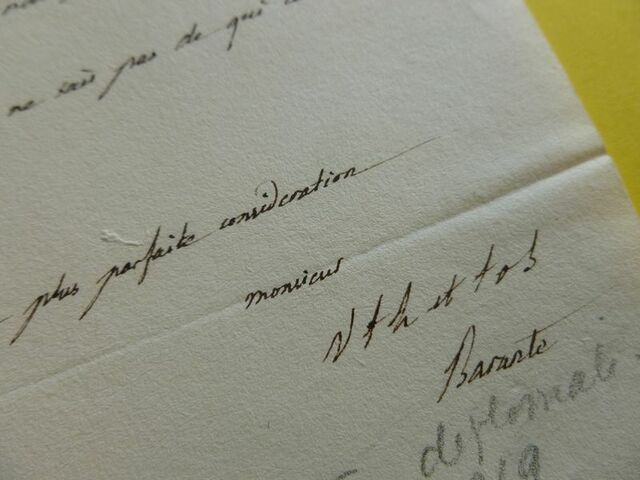 ne sais pas de qui
plus parfaite considération
monsieur
V t h et t o s
Barante
diplomate